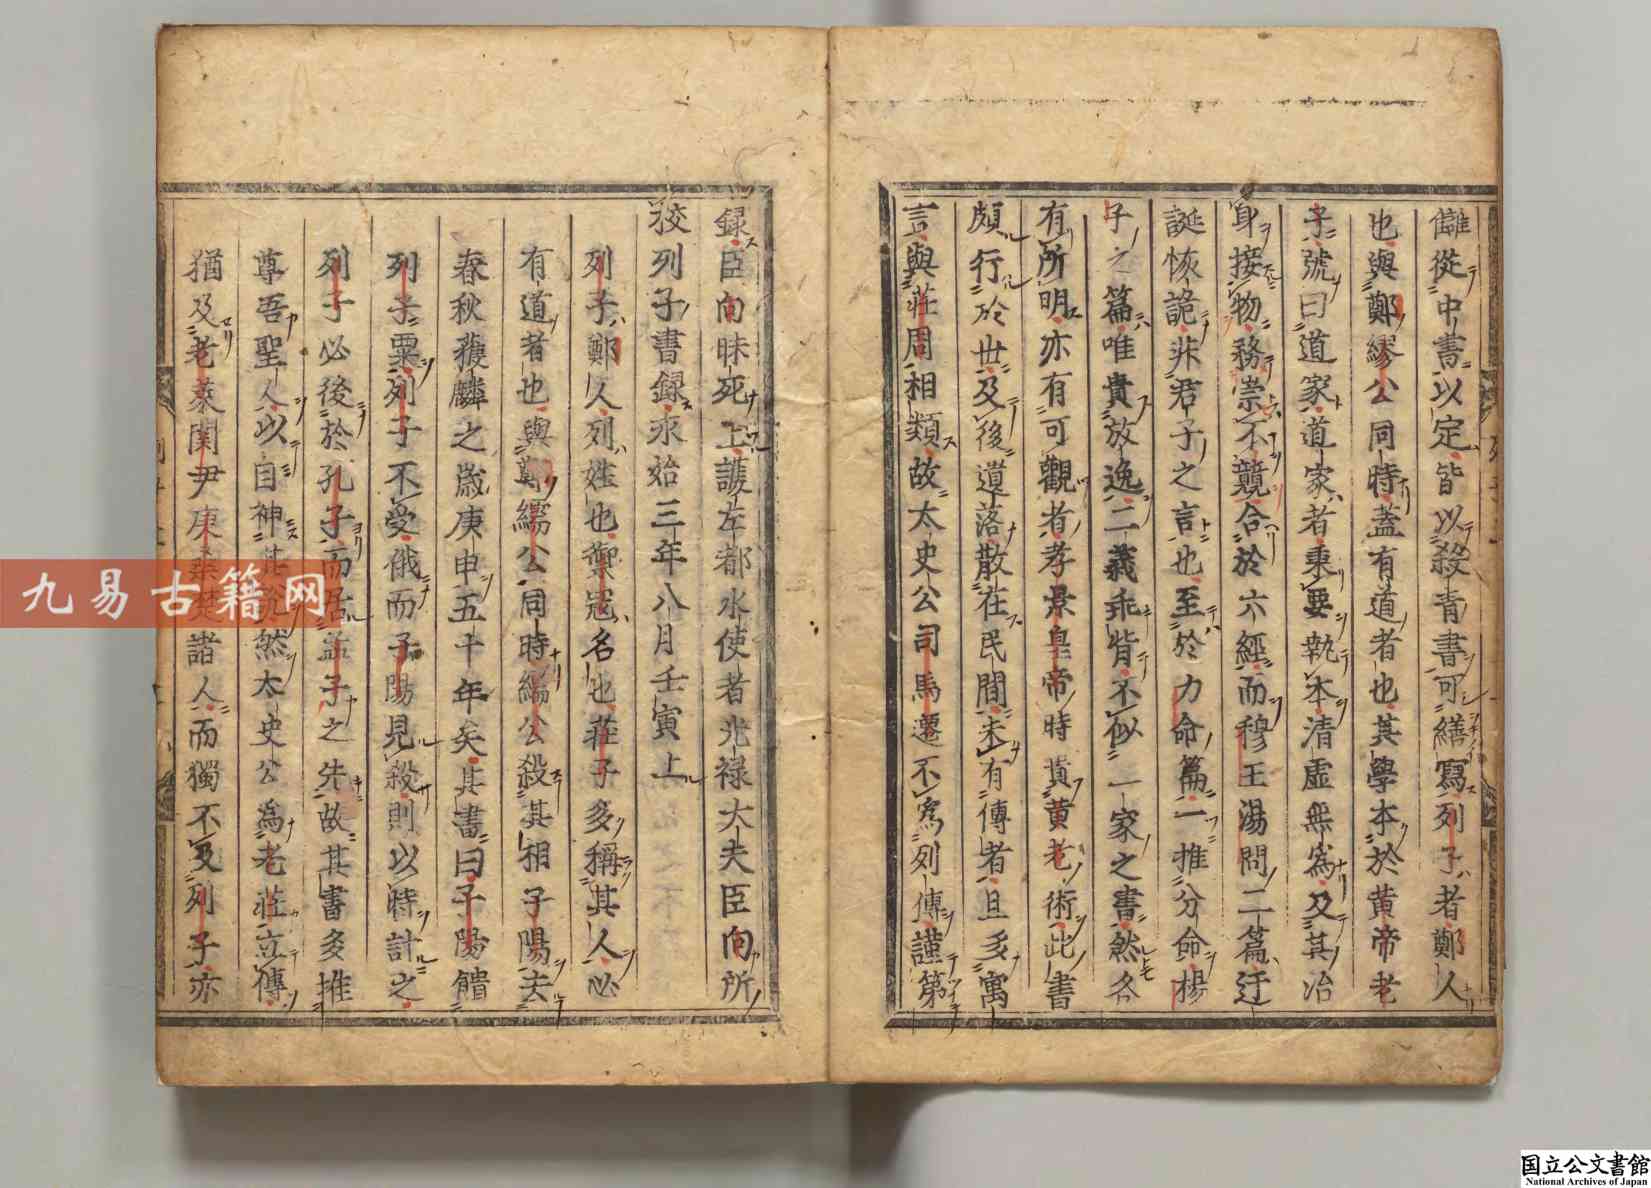 讎從中書以定皆以殺青書可繕寫列子者鄭人
也與鄭繆公同時蓋有道者也其學本於黃帝老
子號曰道家道家者秉要執本清虛無為及其治
身接物務崇不競合於六經而穆王湯問二篇迂
誕恢詭非君子之言也至於力命篇一推分命楊
子之篇唯貴放逸二義乖背不似一家之書然各
有所明亦有可觀者孝景皇帝時貴黃老術此書
頗行於世及後遺落散在民間未有傳者且多寓
言與莊周相類故太史公司馬遷不為列傳謹第
錄臣向昧死上護左都水使者光祿大夫臣向所
校列子書錄永始三年八月壬寅上
列子鄭人列姓也禦寇名也莊子多稱其人必
有道者也與鄭繻公同時繻公殺其相子陽去
春秋獲麟之歲庚申五十年矣其書曰子陽饋
列子粟列子不受俄而子陽見殺則以時計之
列子必後於孔子而居孟子之先故其書多推
尊吾聖人以自神其說然太史公為老莊立傳
猶及老萊關尹庚桑楚諸人而獨不及列子亦
九易古籍网
国立公文書館
National Archives of Japan